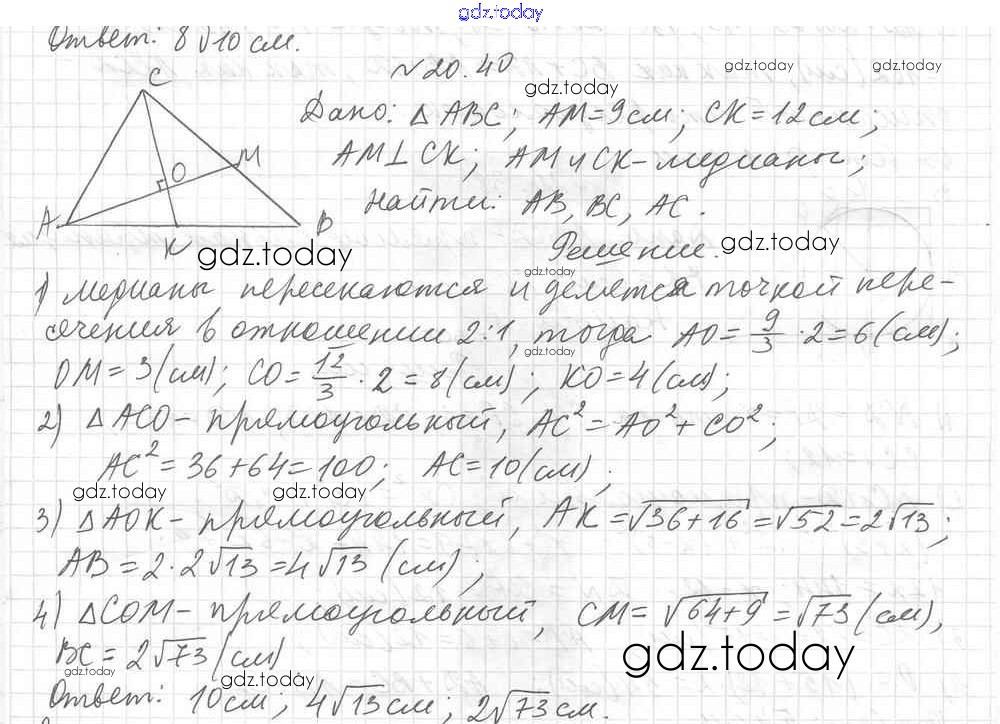 gdz.today
Ответ: 8√10 см.
№ 20.40
gdz.today gdz.today gdz.today
C
M
O
A
K
B
Дано: △ ABC; AM=9см; CK=12см;
AM⊥CK; AM и CK-медианы;
Найти: AB, BC, AC.
Решение.
gdz.today gdz.today
gdz.today
1) медианы пересекаются и делятся точкой пере-
сечения в отношении 2:1, тогда AO = 9/3 · 2 = 6 (см);
gdz.today
OM = 3 (см); CO = 12/3 · 2 = 8 (см); KO = 4 (см);
2) △ ACO - прямоугольный, AC² = AO² + CO²;
AC² = 36 + 64 = 100; AC = 10 (см);
gdz.today gdz.today
3) △AOK - прямоугольный, AK = √36+16 = √52 = 2√13;
AB = 2 · 2√13 = 4√13 (см);
4) △COM - прямоугольный, CM = √64+9 = √73 (см),
BC = 2√73 (см)
gdz.today gdz.today gdz.today
Ответ: 10 см; 4√13 см; 2√73 см.